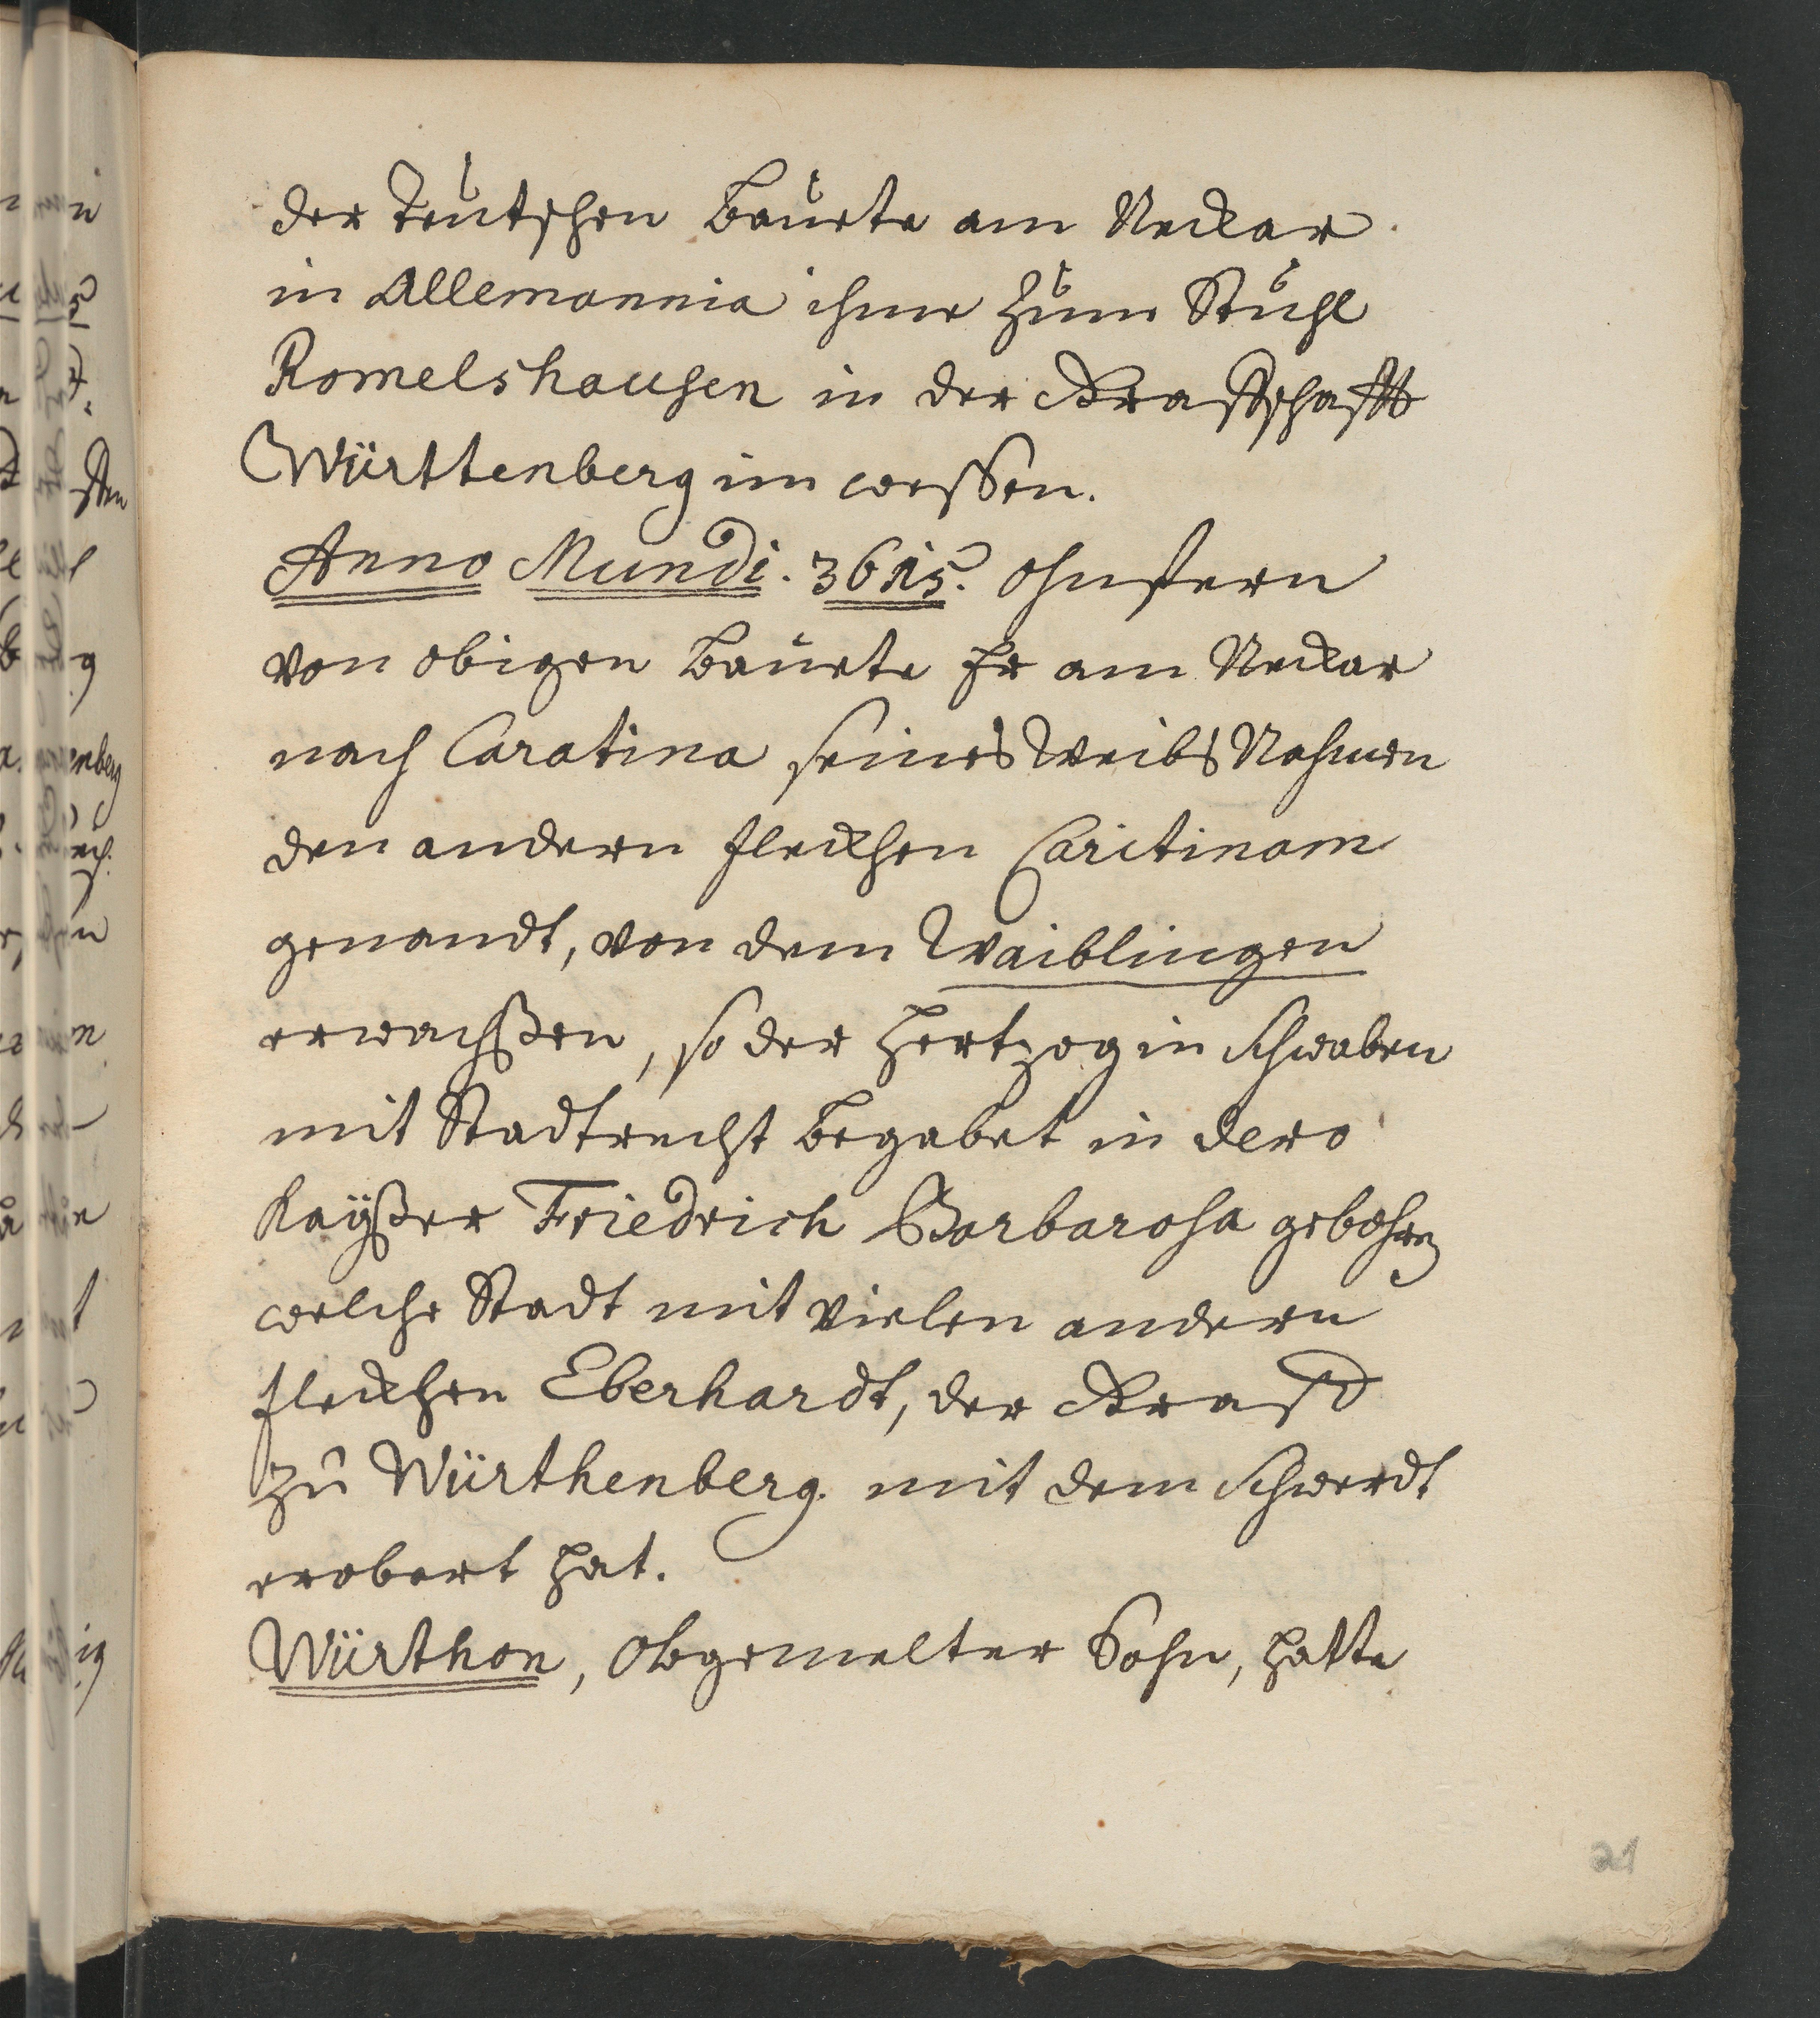 der teutschen bauete am Neckar
in Allemannia ihme zum Stuhl
Romelshausen in der Graffschafft
Württenberg im
Anno Mundi. 3615. ohnfern
von obigen bauete Er am Neckar
nach Caratina seines Weibs Nahmen
den andern flecken Caritinam
genandt, von dem Waiblingen
erwachßen, so der Hertzog in Schwaben
mit Stadtrecht begabet in dero
Kayßer Friedrich Barbarosa gebohren
welche Stadt mit vielen andern
flecken Eberhardt, der Graff
zu Würthenberg. mit dem Schwerdt
erobert hat.
Würthon, obgemelter Sohn, hatte
21